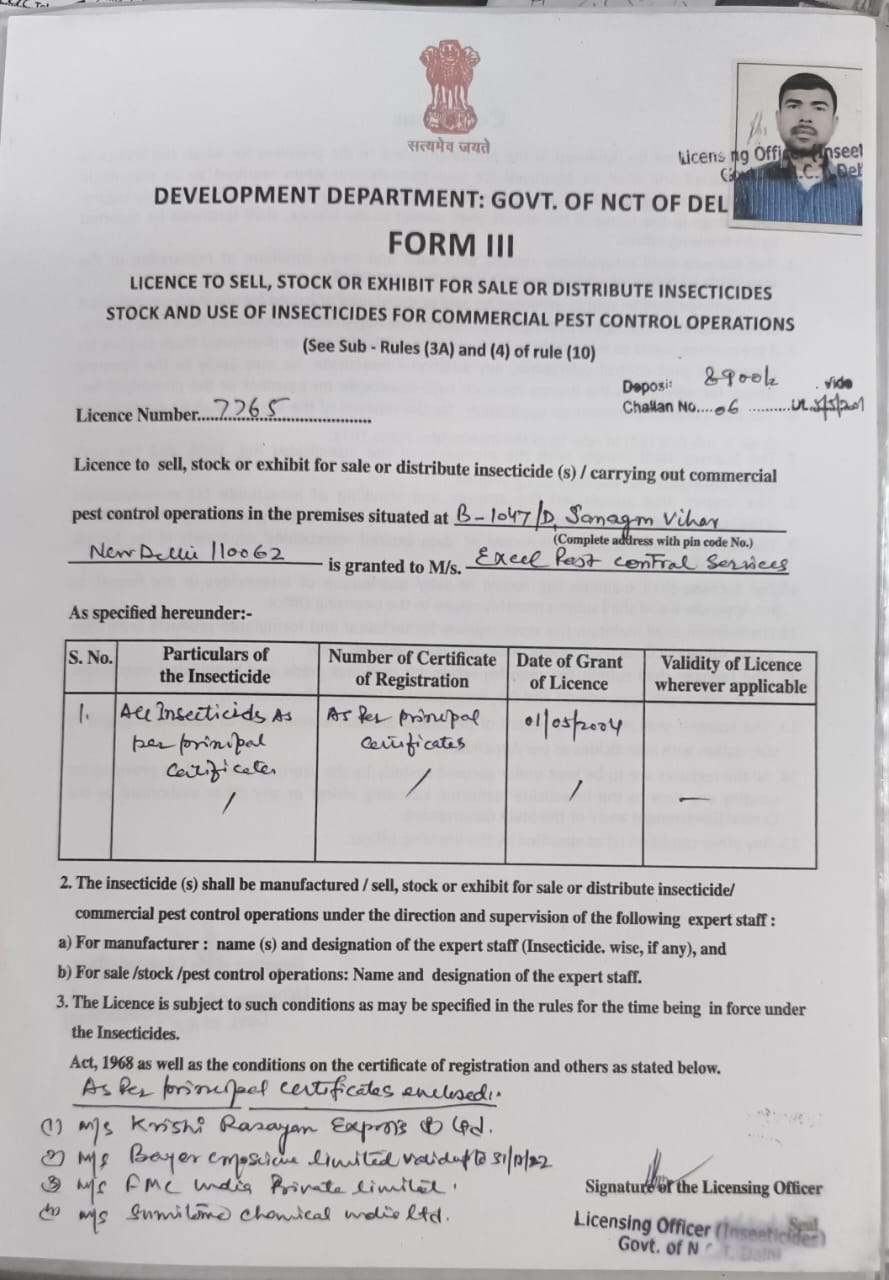 सत्यमेव जयते
Licensing Officer (Insect
DEVELOPMENT DEPARTMENT: GOVT. OF NCT OF DEL
FORM III
LICENCE TO SELL, STOCK OR EXHIBIT FOR SALE OR DISTRIBUTE INSECTICIDES
STOCK AND USE OF INSECTICIDES FOR COMMERCIAL PEST CONTROL OPERATIONS
(See Sub - Rules (3A) and (4) of rule (10)
Deposi: Vide
Licence Number....7765....
Challan No....06
Licence to sell, stock or exhibit for sale or distribute insecticide (s) / carrying out commercial
pest control operations in the premises situated at B-1047/D, Sanagm Vihar
(Complete address with pin code No.)
New Delhi 110062 is granted to M/s. Excel Pest Control Services
As specified hereunder:-
S. No. Particulars of the Insecticide Number of Certificate of Registration Date of Grant of Licence Validity of Licence wherever applicable
1. All Insecticids As As Per principal 01/05/2004
per principal certificates
certificates
2. The insecticide (s) shall be manufactured / sell, stock or exhibit for sale or distribute insecticide/
commercial pest control operations under the direction and supervision of the following expert staff :
a) For manufacturer : name (s) and designation of the expert staff (Insecticide. wise, if any), and
b) For sale /stock /pest control operations: Name and designation of the expert staff.
3. The Licence is subject to such conditions as may be specified in the rules for the time being in force under
the Insecticides.
Act, 1968 as well as the conditions on the certificate of registration and others as stated below.
As Per principal certificates enclosed:.
(1) M/s Krishi Rasayan Exports Ltd.
2) M/s Bayer limited valid upto 31/12/22
3) M/s FMC India Private limited.
M/s Sumitomo chemical India ltd.
Signature of the Licensing Officer
Licensing Officer (Insecticides)
Govt. of N.C.T. Delhi